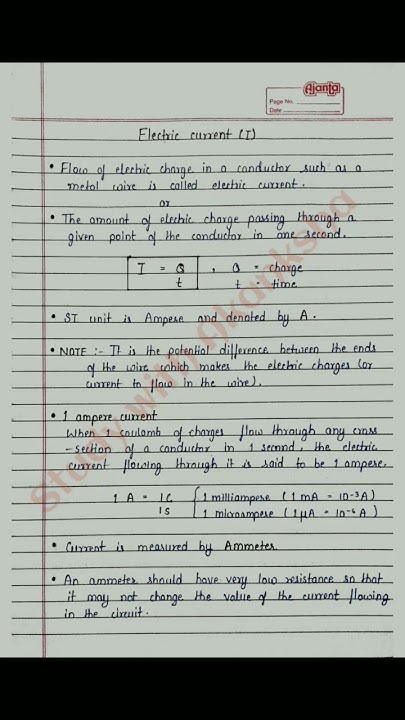 Ajanta
Page No.
Date
Electric current (I)
• Flow of electric charge in a conductor such as a
metal wire is called electric current.
or
• The amount of electric charge passing through a
given point of the conductor in one second.
I = Q , Q = charge
t t = time
• SI unit is Ampere and denoted by A.
• NOTE :- It is the potential difference between the ends
of the wire which makes the electric charges (or
current to flow in the wire).
• 1 ampere current
When 1 coulomb of charges flow through any cross
-section of a conductor in 1 second, the electric
current flowing through it is said to be 1 ampere.
1 A = 1C { 1 milliampere ( 1 mA = 10⁻³A )
1s { 1 microampere ( 1 μA = 10⁻⁶A )
• Current is measured by Ammeter.
• An ammeter should have very low resistance so that
it may not change the value of the current flowing
in the circuit.
Study with Akanksha